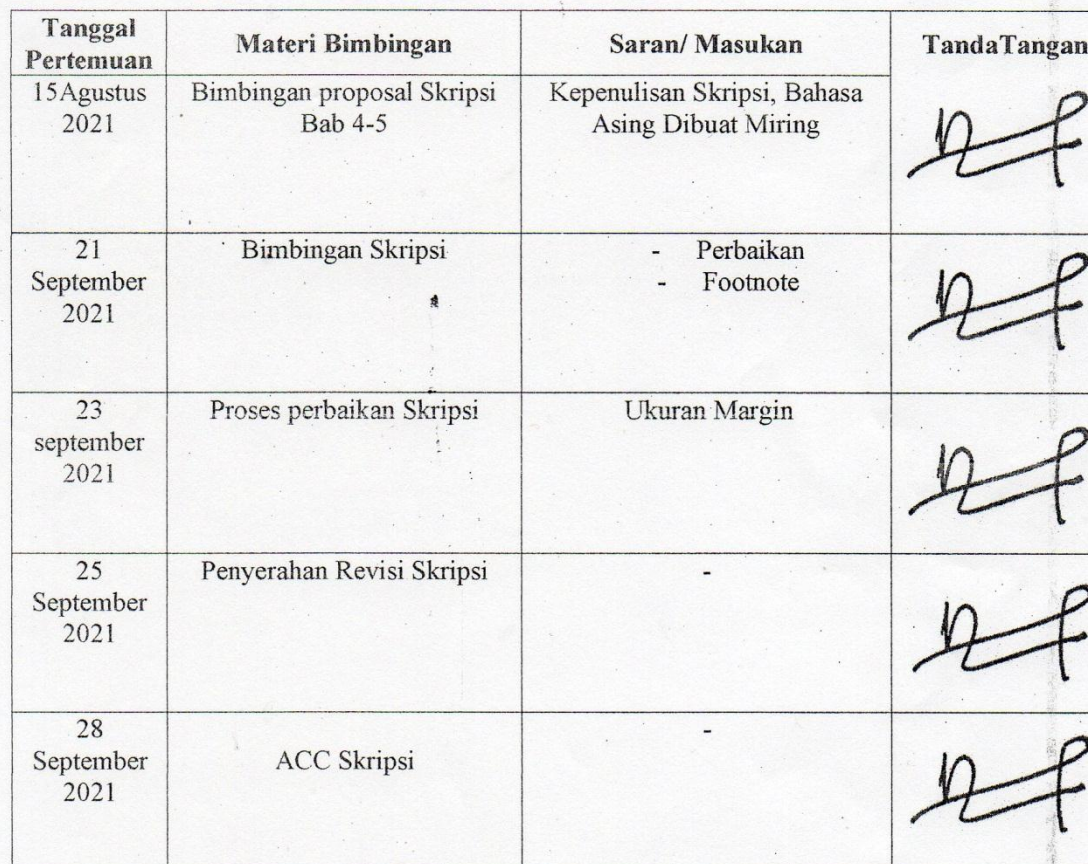 Tanggal
Pertemuan
Materi Bimbingan
Saran/ Masukan
TandaTangan
15Agustus
2021
Bimbingan proposal Skripsi
Bab 4-5
Kepenulisan Skripsi, Bahasa
Asing Dibuat Miring
21
September
2021
Bimbingan Skripsi
- Perbaikan
- Footnote
23
september
2021
Proses perbaikan Skripsi
Ukuran Margin
25
September
2021
Penyerahan Revisi Skripsi
-
28
September
2021
ACC Skripsi
-